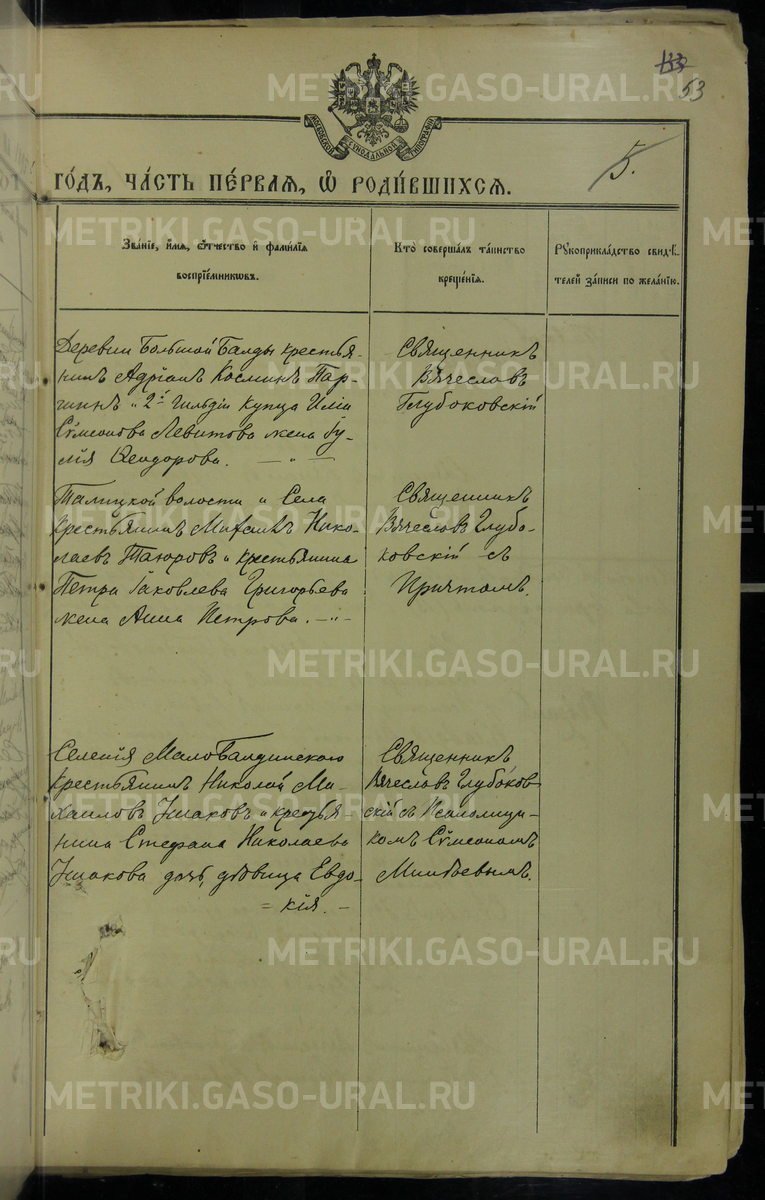 133
53
МОСКОВСКОЙ СѴНОДАЛЬНОЙ ТИПОГРАФІИ
5.
го́дъ, ча́сть пе́рваѧ, ѡ҆ роди́вшихсѧ.
Зва́нїе, и҆́мѧ, ѻ҆́тчество и҆ фами́лїѧ
воспрїе́мникѡвъ.
Кто̀ соверша́лъ та́инство
креще́нїѧ.
Рꙋкоприкла́дство свидѣ́-
телей за́писи по жела́нїю.
Деревни Большой Балды крестья-
нинъ Адріанъ Косминъ
" 2й гильдіи купца Иліи
Сѵмеонова Левитова жена Іу-
лія Ѳеодорова. — " —
Священникъ
Вячеслав
Глубоковскій
Талицкой волости и Села
крестьянинъ Михаилъ Нико-
лаевъ Таюровъ и крестьянина
Петра Іаковлева Григорьева
жена Анна Петрова. — " —
Священникъ
Вячеслав Глубо-
ковскій съ
Причтомъ.
Селенія МалоБалдинскаго
крестьянинъ Николай Ми-
хаиловъ Ушаковъ и крестья-
нина Стефана Николаева
Ушакова дочь, дѣвица Евдо-
= кія. –
Священникъ
Вячеславъ Глубоков-
скій съ Псаломщи-
комъ Сѵмеономъ
METRIKI.GASO-URAL.RU